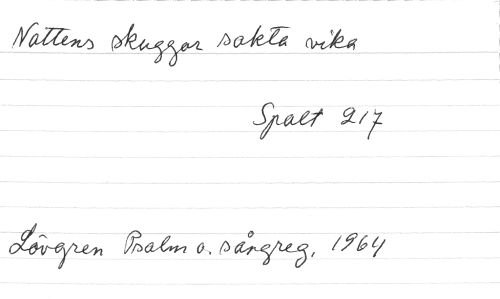 Nattens skuggor sakta vika
Spalt 217
Lövgren Psalm o. sångreg, 1964